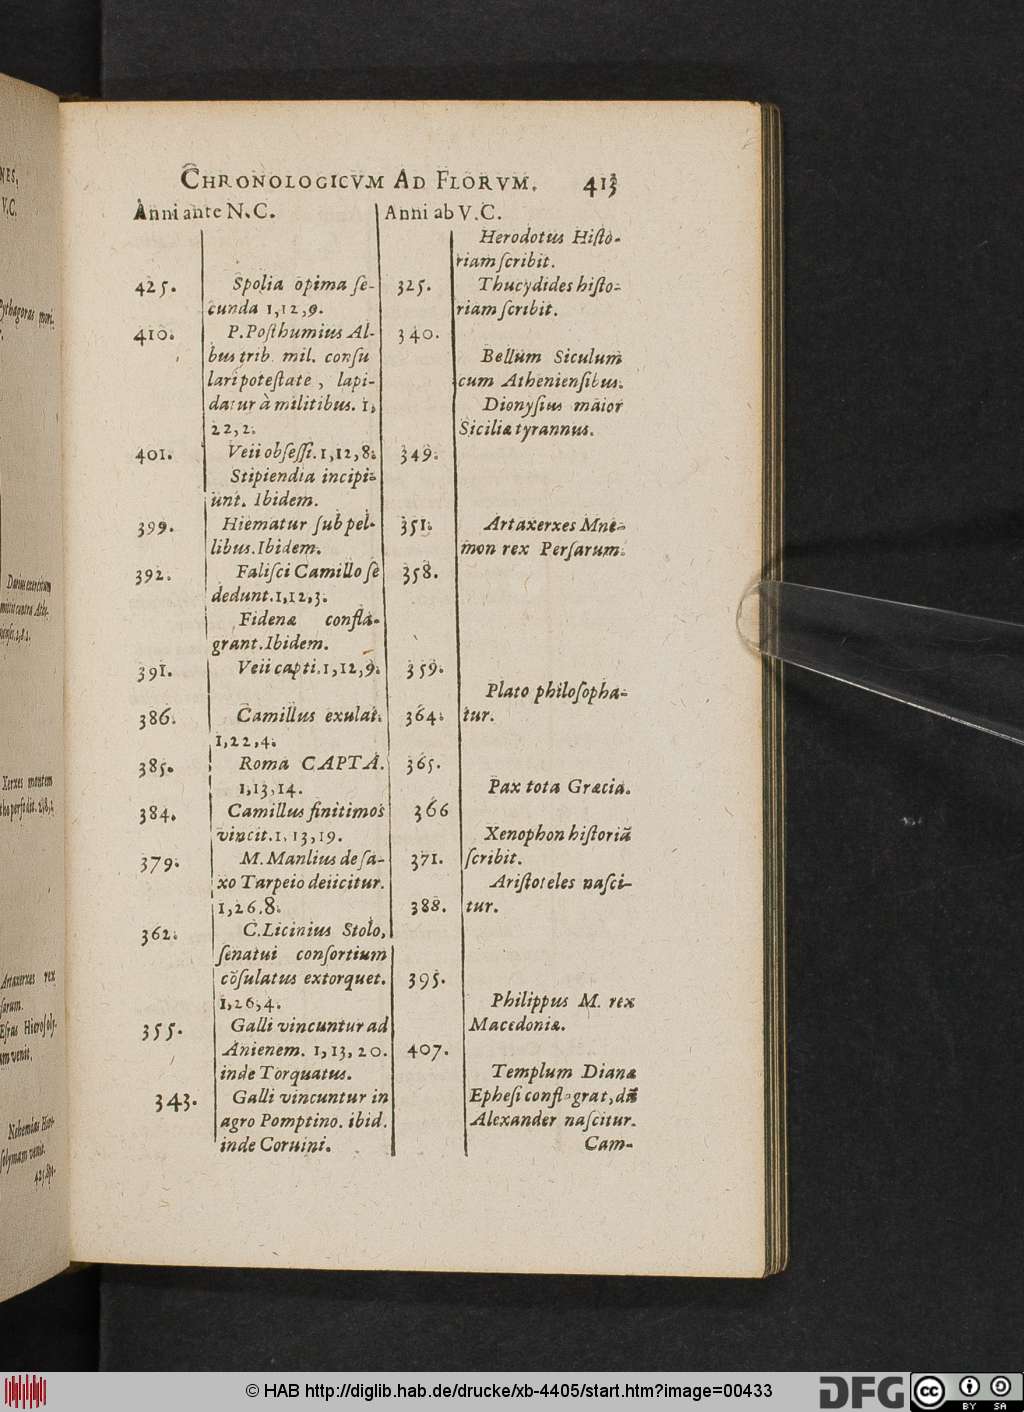 CHRONOLOGICVM AD FLORVM. 413
Anni ante N.C. Anni ab V.C.
Herodotus Histo-
riam scribit.
425. Spolia opima se- 325. Thucydides histo-
cunda 1,12,9. riam scribit.
410. P. Posthumius Al- 340.
bus trib. mil. consu Bellum Siculum
lari potestate, lapi- cum Atheniensibus.
datur à militibus. 1, Dionysius maior
22,2. Siciliæ tyrannus.
401. Veii obsessi. 1,12,8. 349.
Stipiendia incipi-
unt. Ibidem.
399. Hiematur sub pel- 351. Artaxerxes Mne-
libus. Ibidem. mon rex Persarum.
392. Falisci Camillo se 358.
dedunt. 1,12,3.
Fidenæ confla-
grant. Ibidem.
391. Veii capti. 1,12,9. 359.
Plato philosopha-
386. Camillus exulat. 364. tur.
1,22,4.
385. Roma CAPTA. 365.
1,13,14. Pax tota Græcia.
384. Camillus finitimos 366
vincit. 1,13,19. Xenophon historiã
379. M. Manlius de sa- 371. scribit.
xo Tarpeio deiicitur. Aristoteles nasci-
1,26.8. 388. tur.
362. C. Licinius Stolo,
senatui consortium
cõsulatus extorquet. 395.
1,26,4. Philippus M. rex
355. Galli vincuntur ad Macedoniæ.
Anienem. 1,13,20. 407.
inde Torquatus. Templum Dianæ
343. Galli vincuntur in Ephesi conflagrat, dũ
agro Pomptino. ibid. Alexander nascitur.
inde Coruini. Cam-
NES,
V.C.
Pythagoras mori-
Xerxes montem
Artaxerxes rex
sarum.
Esras Hierosoly-
am venit.
Nehemias Hier-
solymam venit.
© HAB http://diglib.hab.de/drucke/xb-4405/start.htm?image=00433
DFG
cc
BY SA